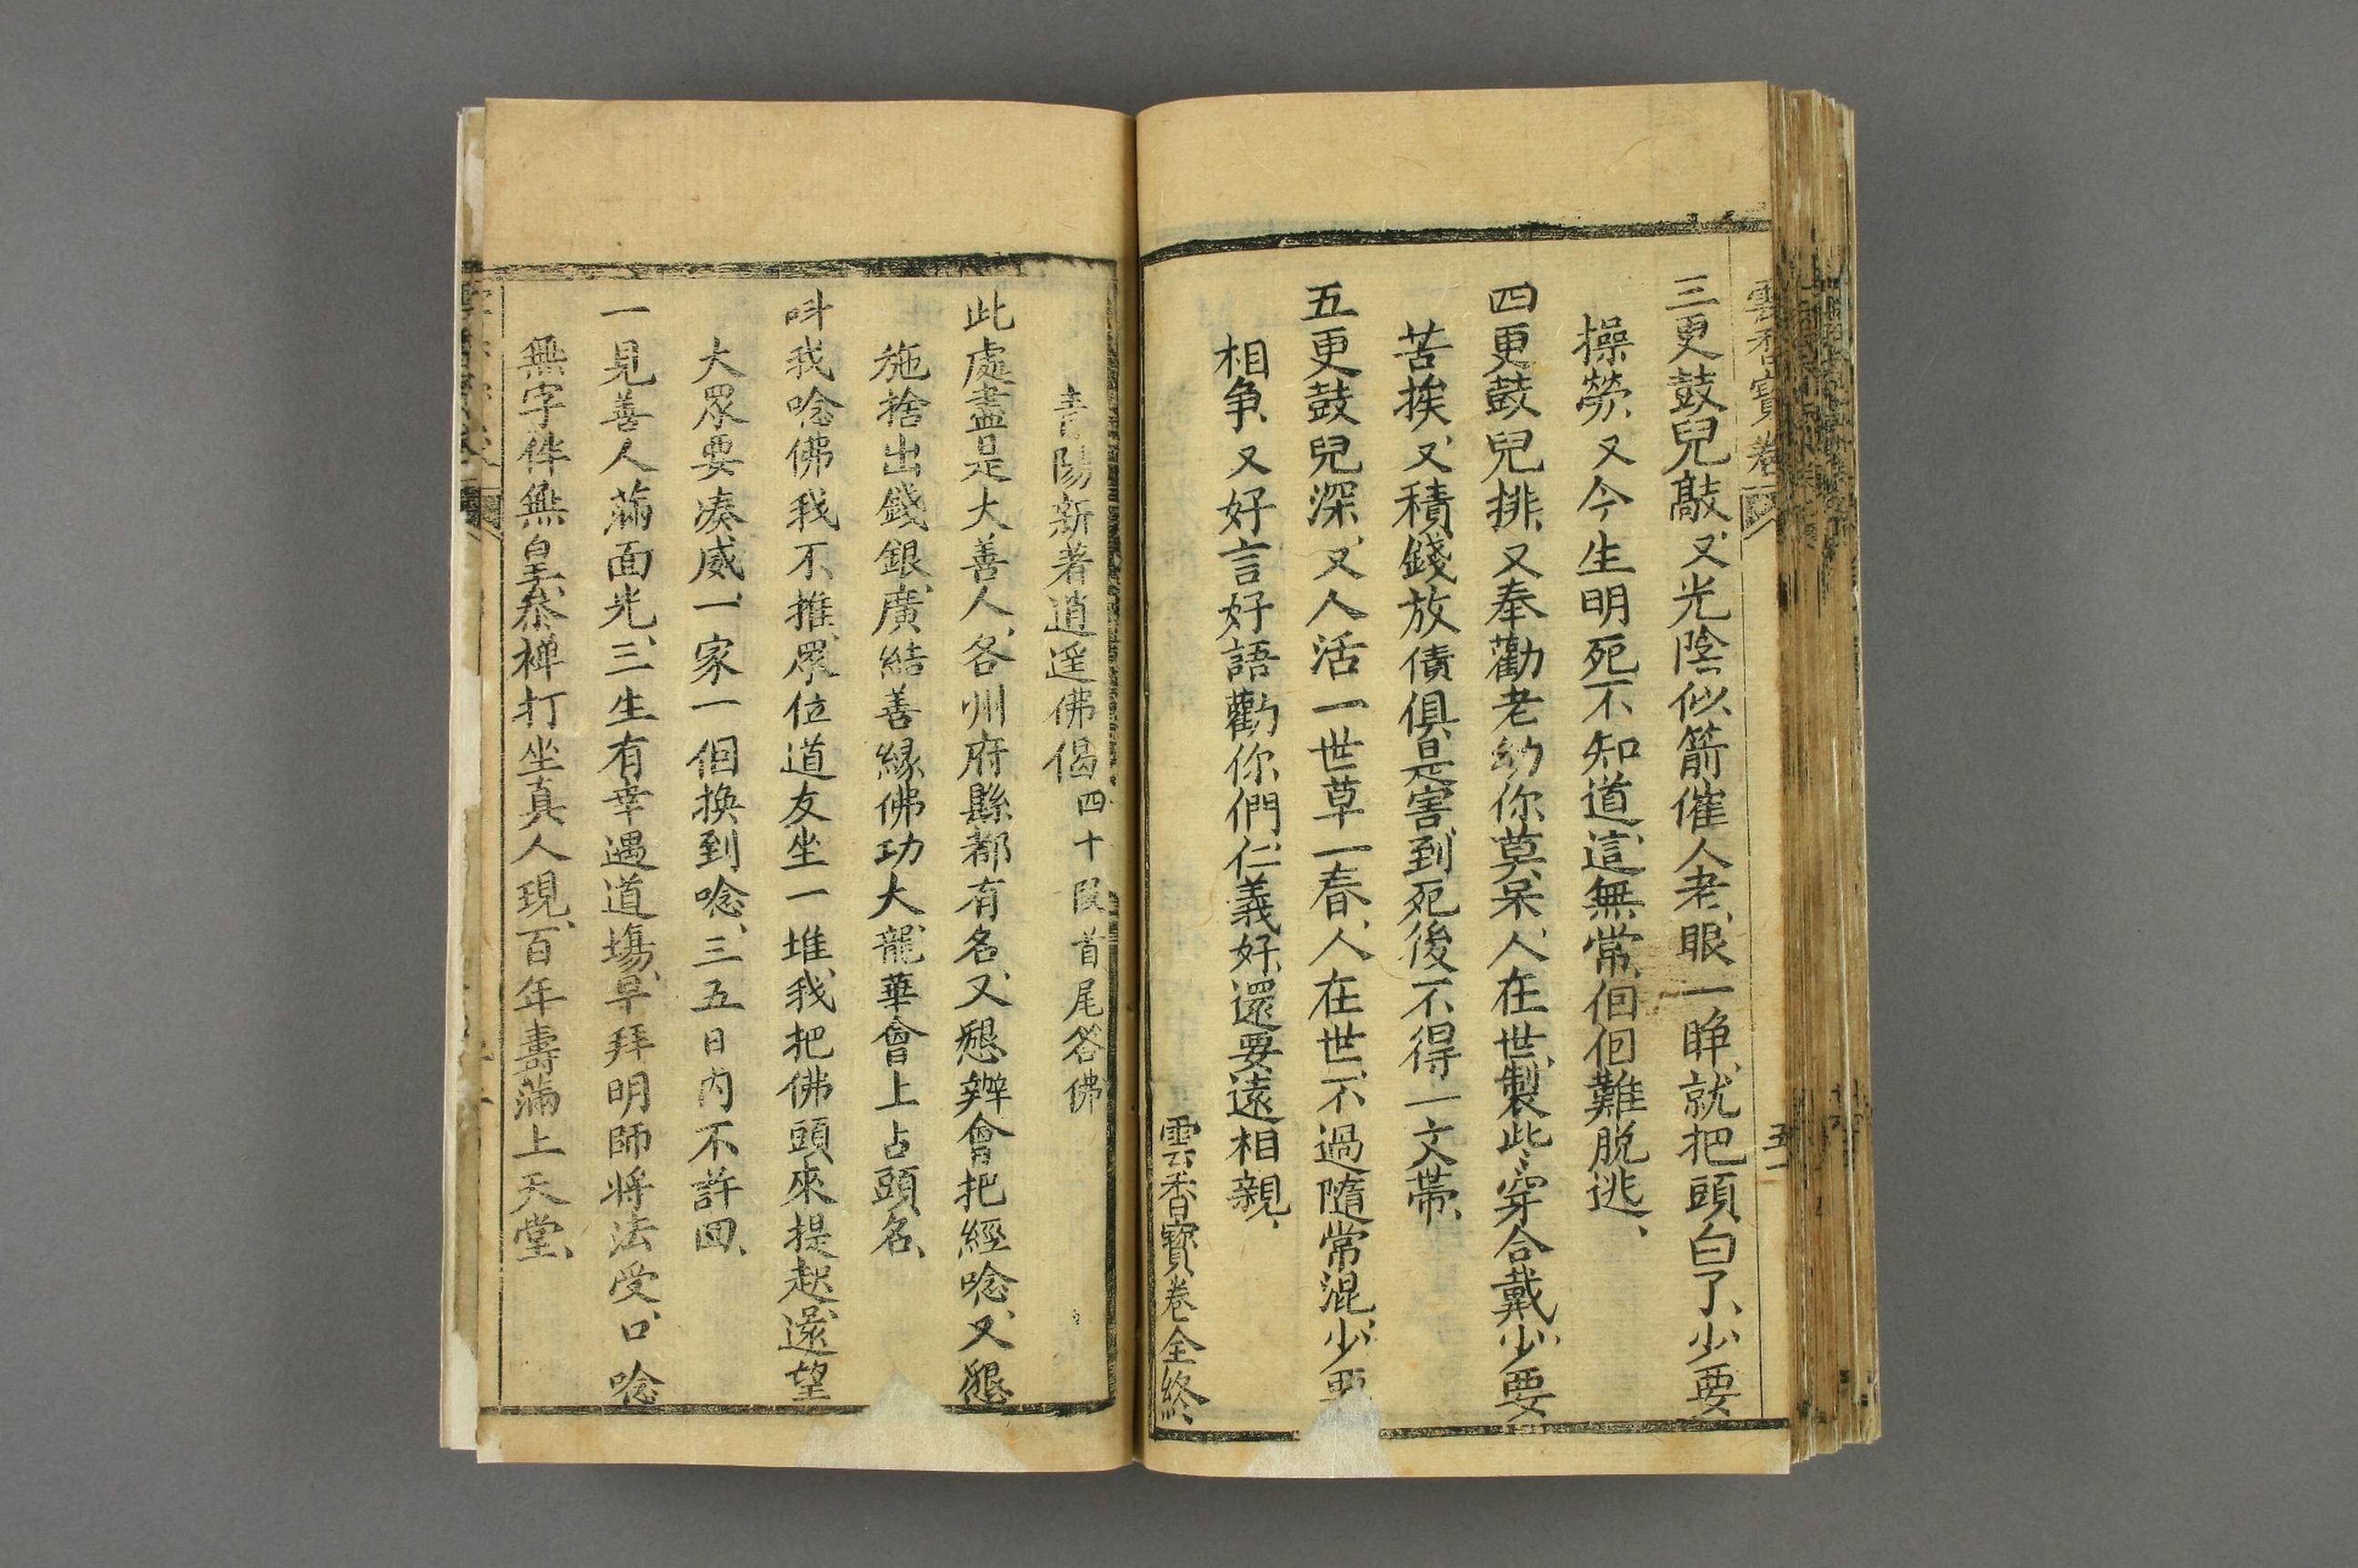 雲香寳卷
五一
三更鼓兒敲、又光陰似箭催人老、眼一睁、就把頭白了、少要
操勞、又今生明死不知道、這無常、佪佪難脱逃、
四更鼓兒排、又奉勸老幼你莫呆、人在世、製些、穿合戴、少要
苦挨、又積錢放債俱是害、到死後不得一文帶、
五更鼓兒深、又人活一世草一春、人在世、不過隨常混、少要
相争、又好言好語勸你們、仁義好、還要遠相親、
雲香寶卷全終、
青陽新著逍遥佛偈 四十段首尾答佛
此處盡是大善人、各州府縣都有名、又懇辦會把經唸、又懇
施捨出錢銀、廣結善縁佛功大、龍華會上占頭名、
呌我唸佛我不推、眾位道友坐一堆、我把佛頭來提起、遠望
大眾要凑威、一家一個换到唸、三五日内不許回、
一見善人滿面光、三生有幸遇道塲、早拜明師将法受、口唸
無字伴無皇、叅禅打坐真人現、百年壽滿上天堂、